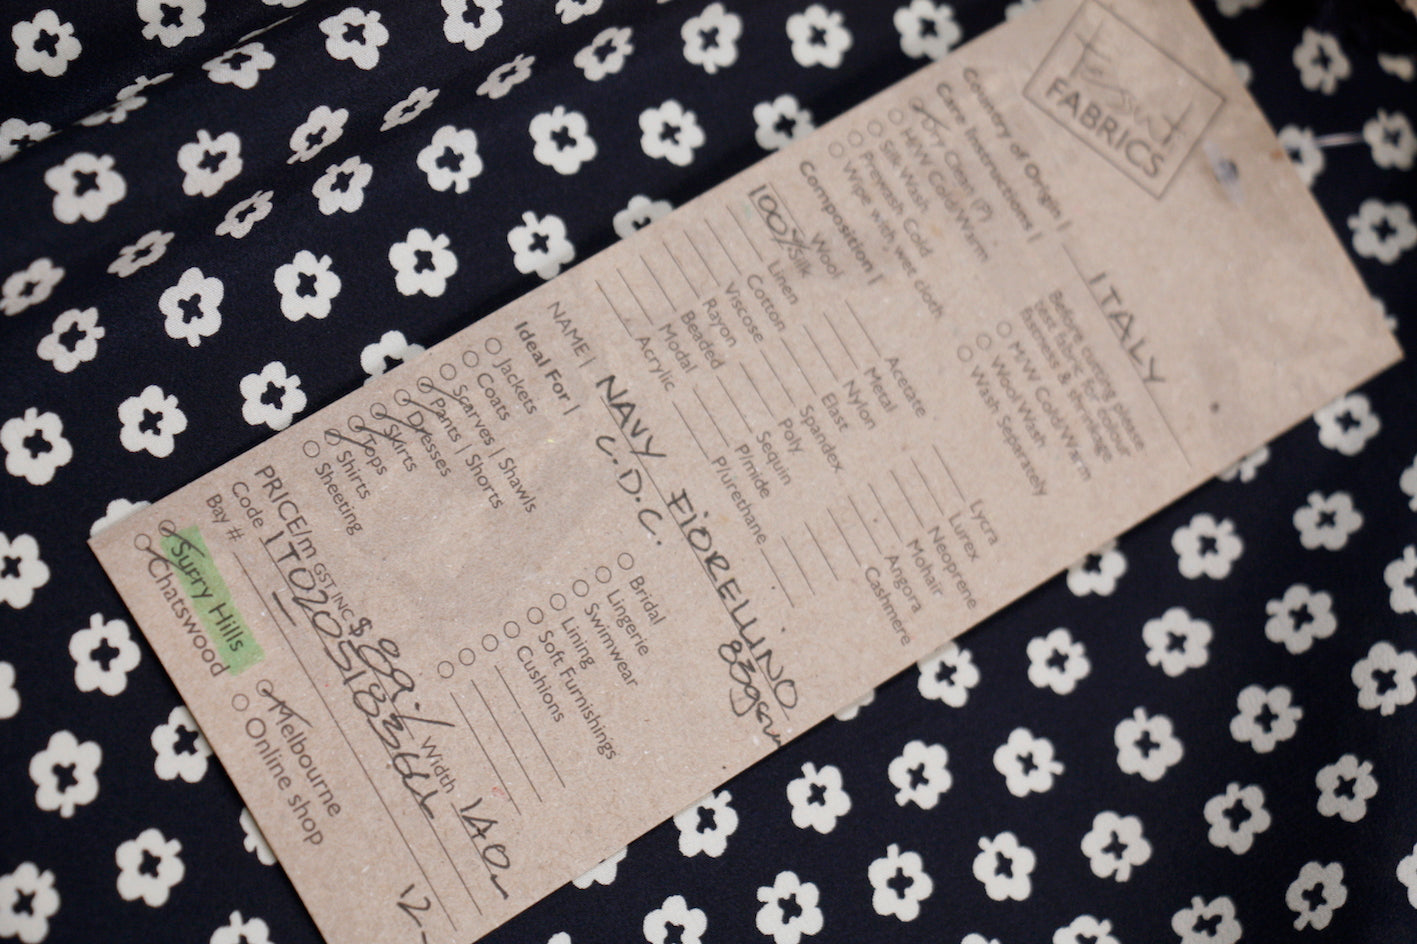 Tessuti
FABRICS
Country of Origin | ITALY
Care Instructions |
Dry Clean (P)
H/W Cold/Warm
Silk Wash
Prewash Cold
Wipe with wet cloth
Before cutting please
test fabric for colour
fastness & shrinkage
M/W Cold/Warm
Wool Wash
Wash Separately
Composition |
Wool
100% Silk
Linen
Cotton
Viscose
Rayon
Beaded
Modal
Acrylic
Acetate
Metal
Nylon
Elast
Spandex
Poly
Sequin
P/mide
P/urethane
Lycra
Lurex
Neoprene
Mohair
Angora
Cashmere
NAME | NAVY FIORELLINO
C.D.C. 83gsm
Ideal For |
Jackets
Coats
Scarves | Shawls
Pants | Shorts
Dresses
Skirts
Tops
Shirts
Sheeting
Bridal
Lingerie
Swimwear
Lining
Soft Furnishings
Cushions
PRICE/m GST INC $ 89. Width 140
Code
Bay #
Surry Hills
Chatswood
Melbourne
Online shop